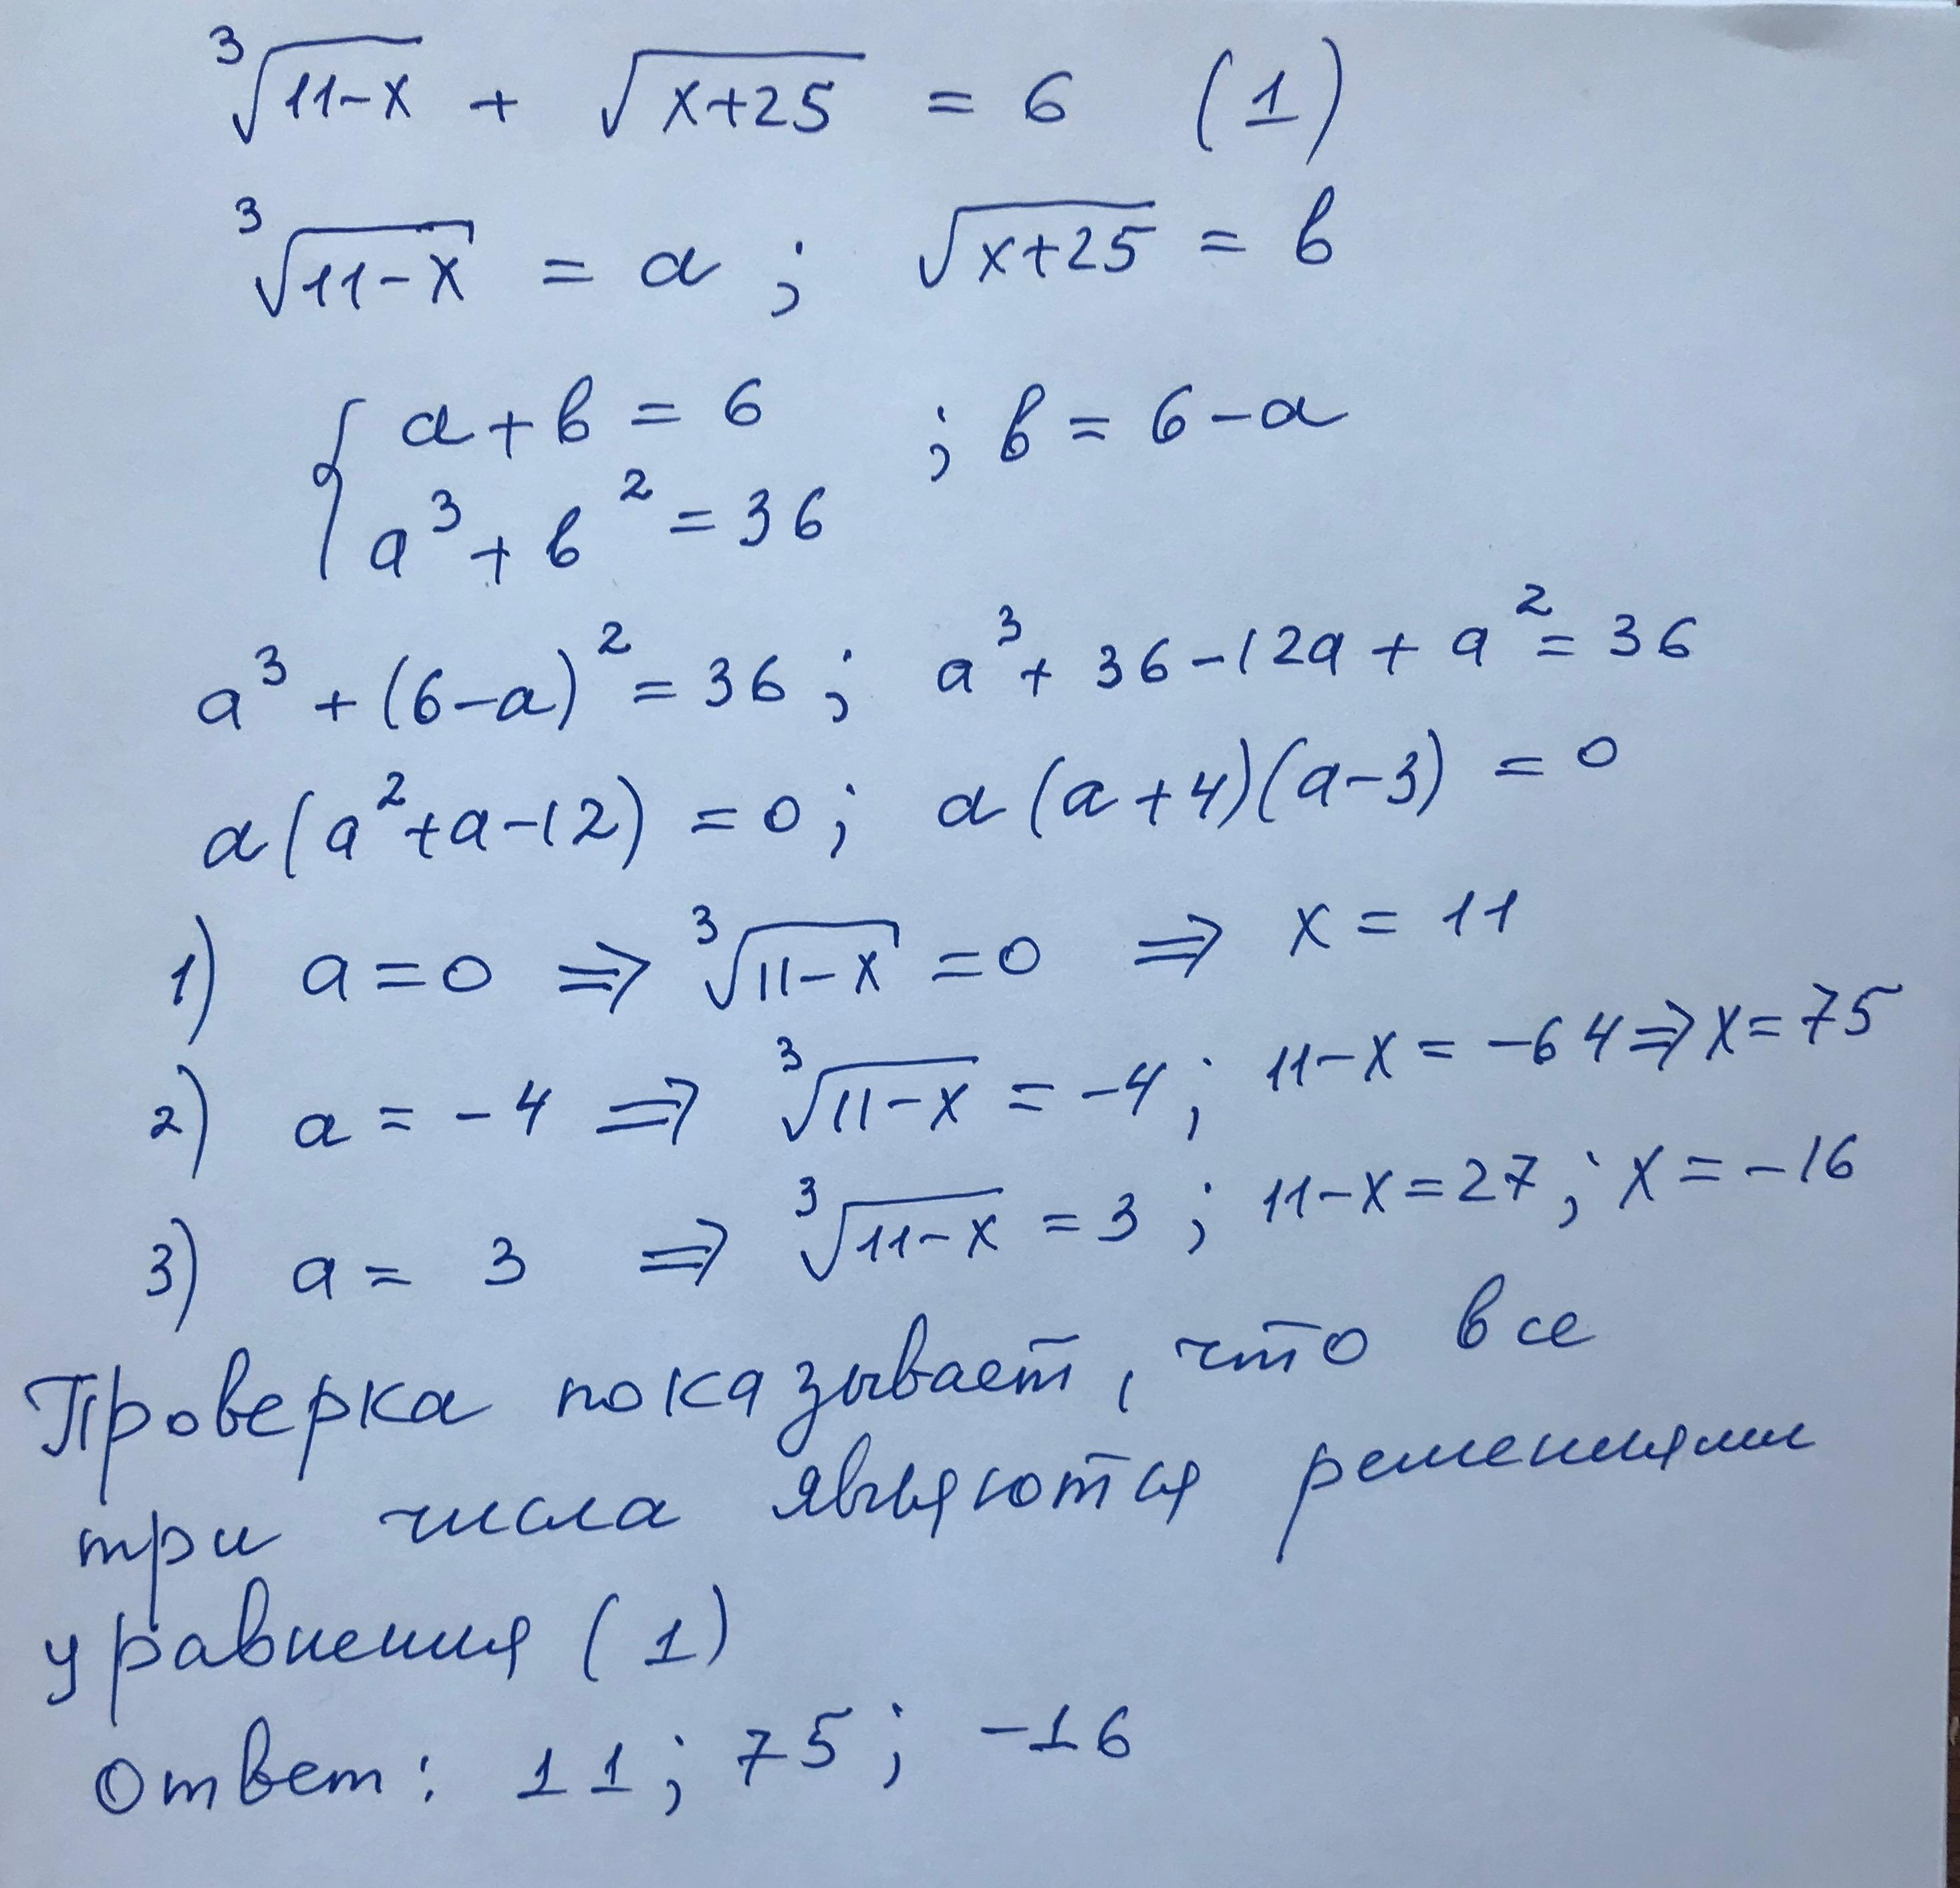 ∛(11-x) + √(x+25) = 6 (1)
∛(11-x) = a ; √(x+25) = b
{ a + b = 6 ; b = 6 - a
a³ + b² = 36
a³ + (6-a)² = 36 ; a³ + 36 - 12a + a² = 36
a(a² + a - 12) = 0 ; a(a+4)(a-3) = 0
1) a = 0 ⇒ ∛(11-x) = 0 ⇒ x = 11
2) a = -4 ⇒ ∛(11-x) = -4 ; 11-x = -64 ⇒ x = 75
3) a = 3 ⇒ ∛(11-x) = 3 ; 11-x = 27 ; x = -16
Проверка показывает, что все
три числа являются решениями
уравнения (1)
Ответ: 11 ; 75 ; -16